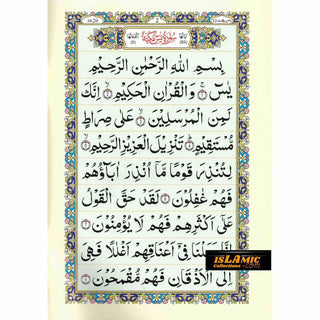 سُوْرَةُ يٰسٓ مَكِّيَّةٌ
بِسْمِ اللّٰهِ الرَّحْمٰنِ الرَّحِيْمِ
يٰسٓ ۝ وَالْقُرْاٰنِ الْحَكِيْمِ ۝ اِنَّكَ
لَمِنَ الْمُرْسَلِيْنَ ۝ عَلٰى صِرَاطٍ
مُّسْتَقِيْمٍ ۝ تَنْزِيْلَ الْعَزِيْزِ الرَّحِيْمِ ۝
لِتُنْذِرَ قَوْمًا مَّآ اُنْذِرَ اٰبَآؤُهُمْ
فَهُمْ غٰفِلُوْنَ ۝ لَقَدْ حَقَّ الْقَوْلُ
عَلٰٓى اَكْثَرِهِمْ فَهُمْ لَا يُؤْمِنُوْنَ ۝
اِنَّا جَعَلْنَا فِيْٓ اَعْنَاقِهِمْ اَغْلٰلًا فَهِيَ
اِلَى الْاَذْقَانِ فَهُمْ مُّقْمَحُوْنَ ۝
ISLAMIC
Collections.com